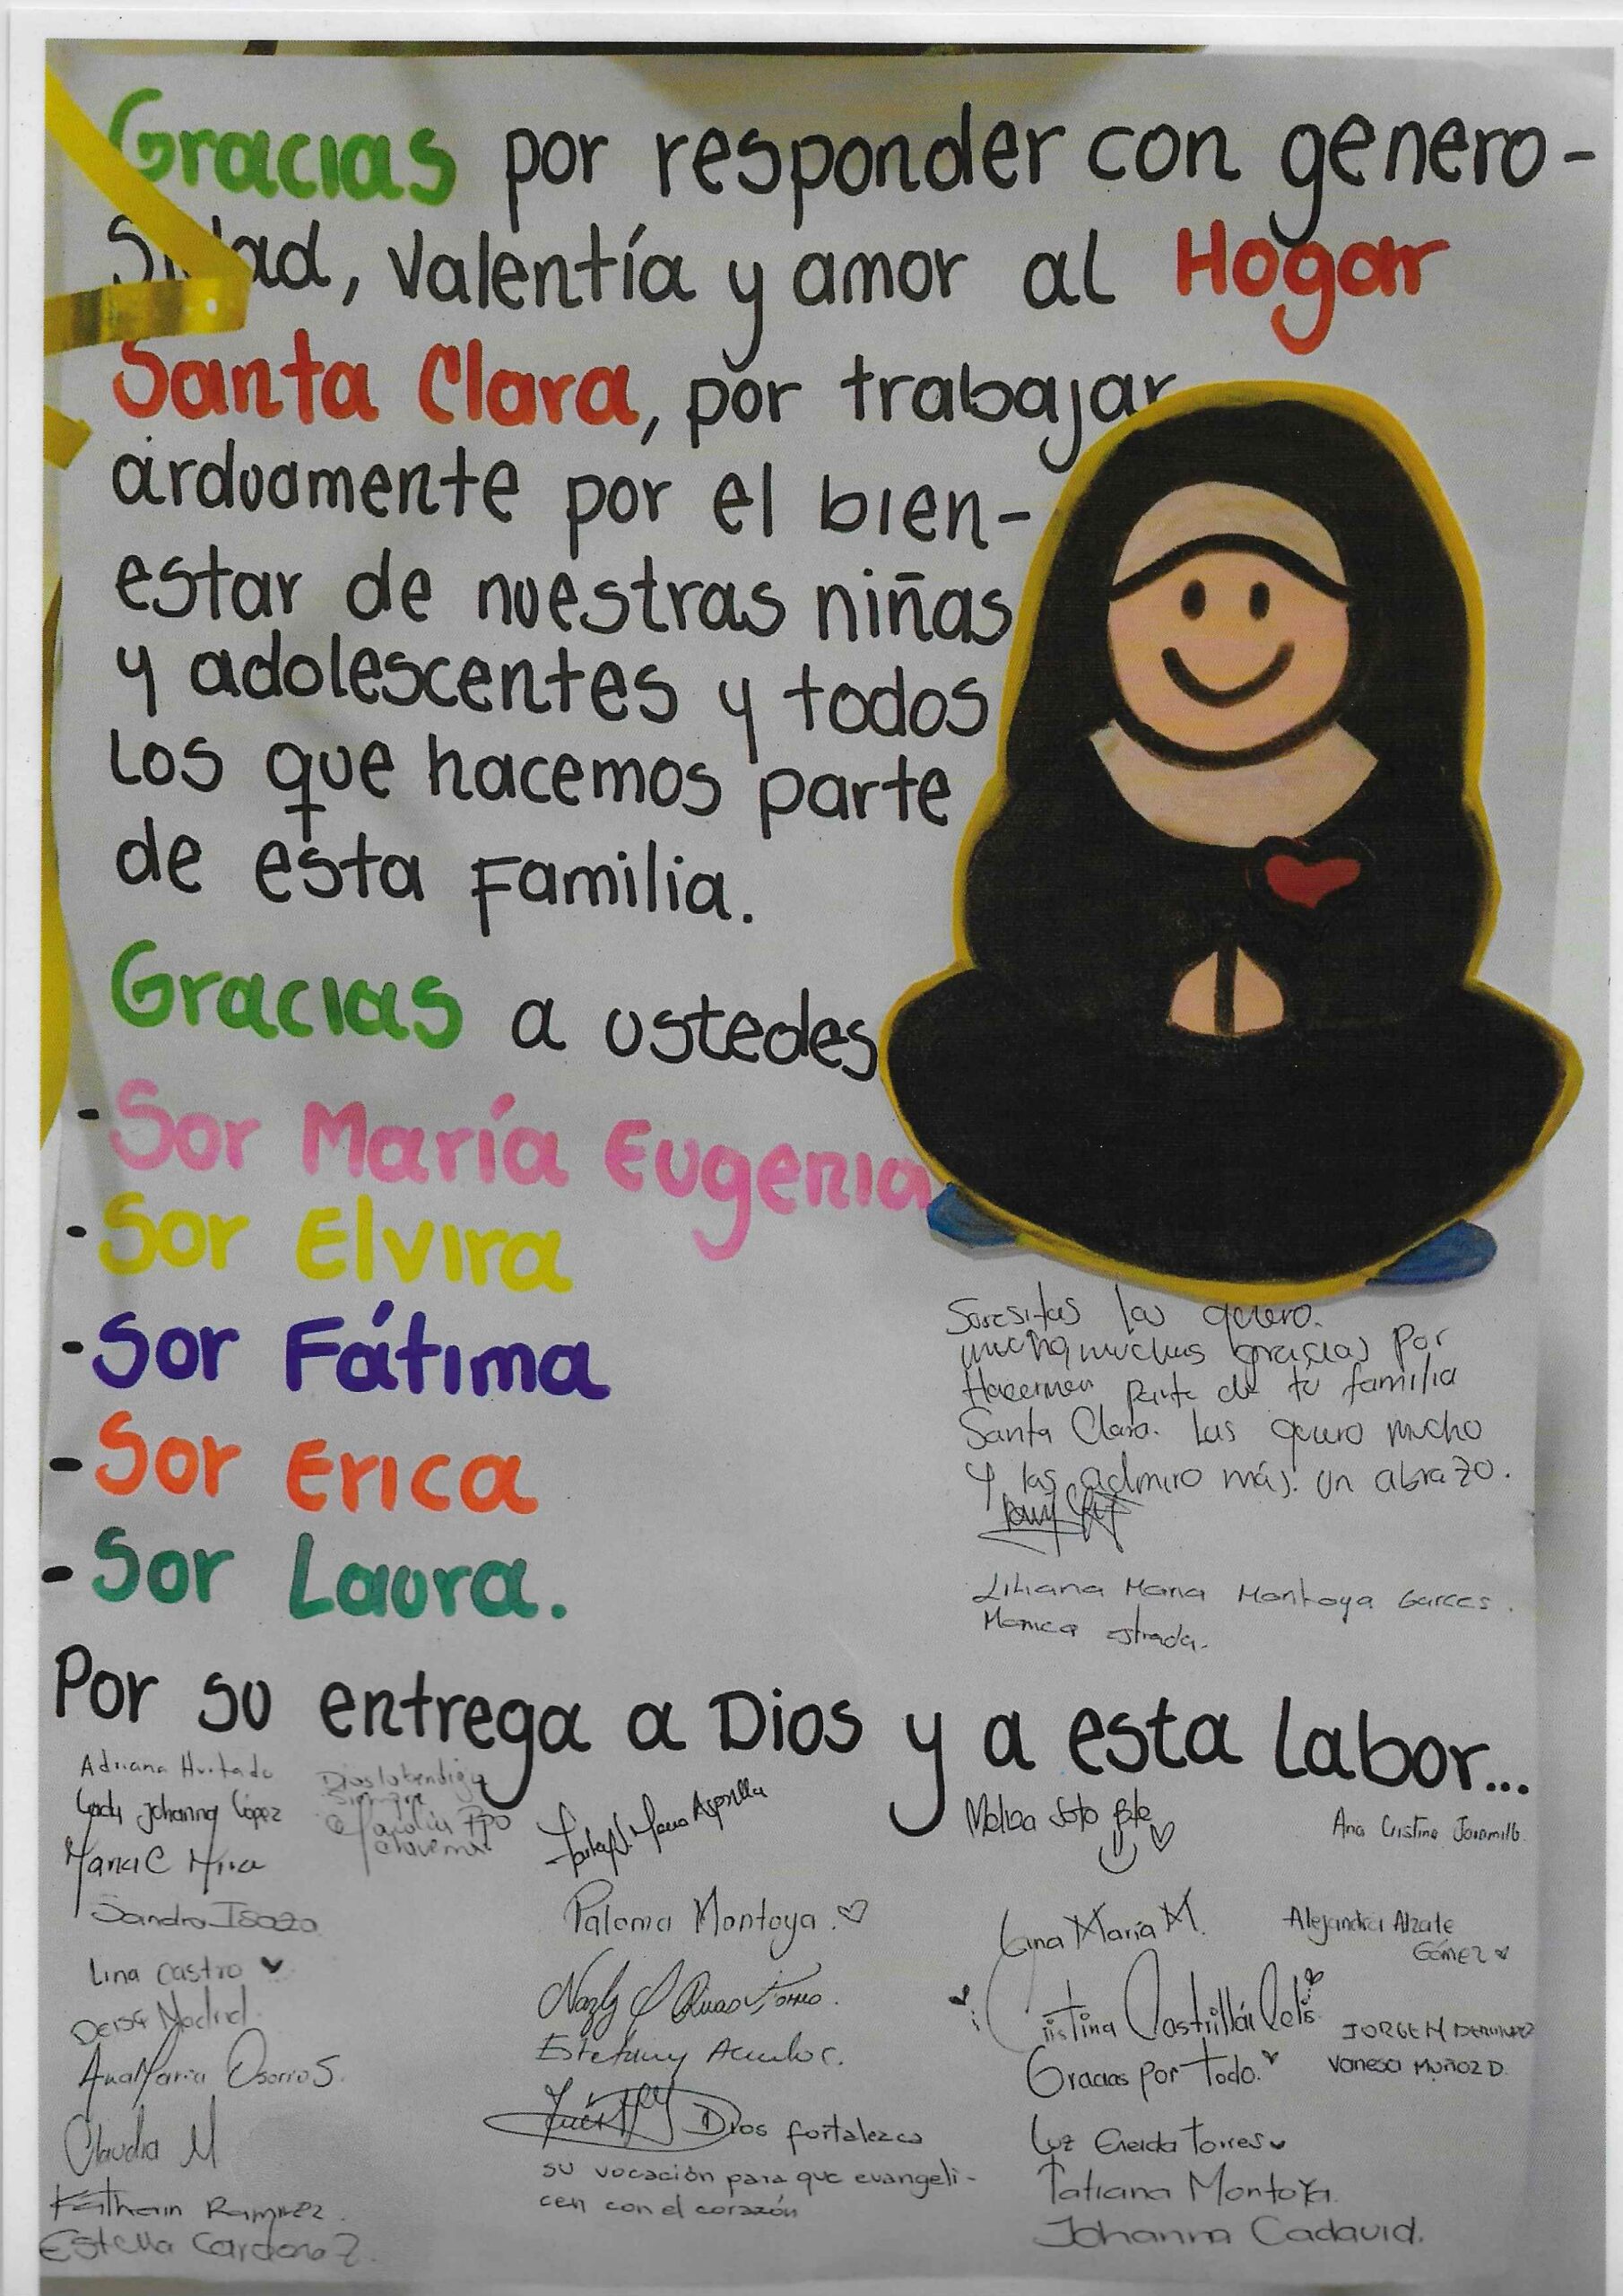 Gracias por responder con genero-
sidad, valentía y amor al Hogar
Santa Clara, por trabajar
arduamente por el bien-
estar de nuestras niñas
y adolescentes y todos
los que hacemos parte
de esta Familia.
Gracias a ustedes
-Sor María Eugenia
-Sor Elvira
-Sor Fátima
-Sor Erica
-Sor Laura.
Soresitas las quiero.
mucho, muchas gracias por
Hacerme parte de tu familia
Santa Clara. Las quiero mucho
y las admiro más. Un abrazo.
Liliana Maria Montoya Garces.
Monica estrada.
Por su entrega a Dios y a esta labor...
Adriana Hurtado
Lady Johanna López
Maria C Mira
Sandra Isaza
Lina Castro
Deisy Madrid
Ana Maria Osorio S.
Claudia M
Katherin Ramirez.
Estella Cardona Z.
Dios la bendiga
siempre
Maria Asprilla
Paloma Montoya.
Nazly
Estefany
Dios fortalezca
su vocación para que evangeli-
cen con el corazón
Melba Soto
Lina María M.
Cristina Castrillón Celis
Gracias por todo.
Luz Eneida Torres
Tatiana Montoya.
Johanna Cadavid.
Ana Cristina Jaramillo.
Alejandra Alzate
Gómez
JORGE
Vanesa Muñoz D.